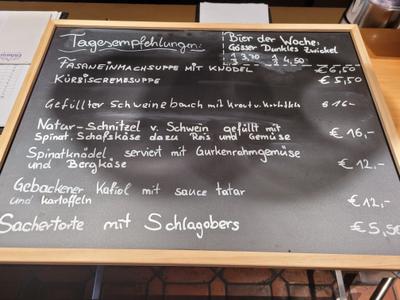 Tagesempfehlungen:
Bier der Woche:
Gösser Dunkles Zwickel
3,70 4,50
FASANEINMACHSUPPE MIT KNÖDEL € 6,50
KÜRBISCREMESUPPE € 5,50
Gefüllter Schweinebauch mit Kraut u. Kartoffeln € 16,-
Natur-Schnitzel v. Schwein gefüllt mit
Spinat, Schafskäse dazu Reis und Gemüse € 16,-
Spinatknödel serviert mit Gurkenrahmgemüse
und Bergkäse € 12,-
Gebackener Kafiol mit sauce tatar
und Kartoffeln € 12,-
Sachertorte mit Schlagobers € 5,50